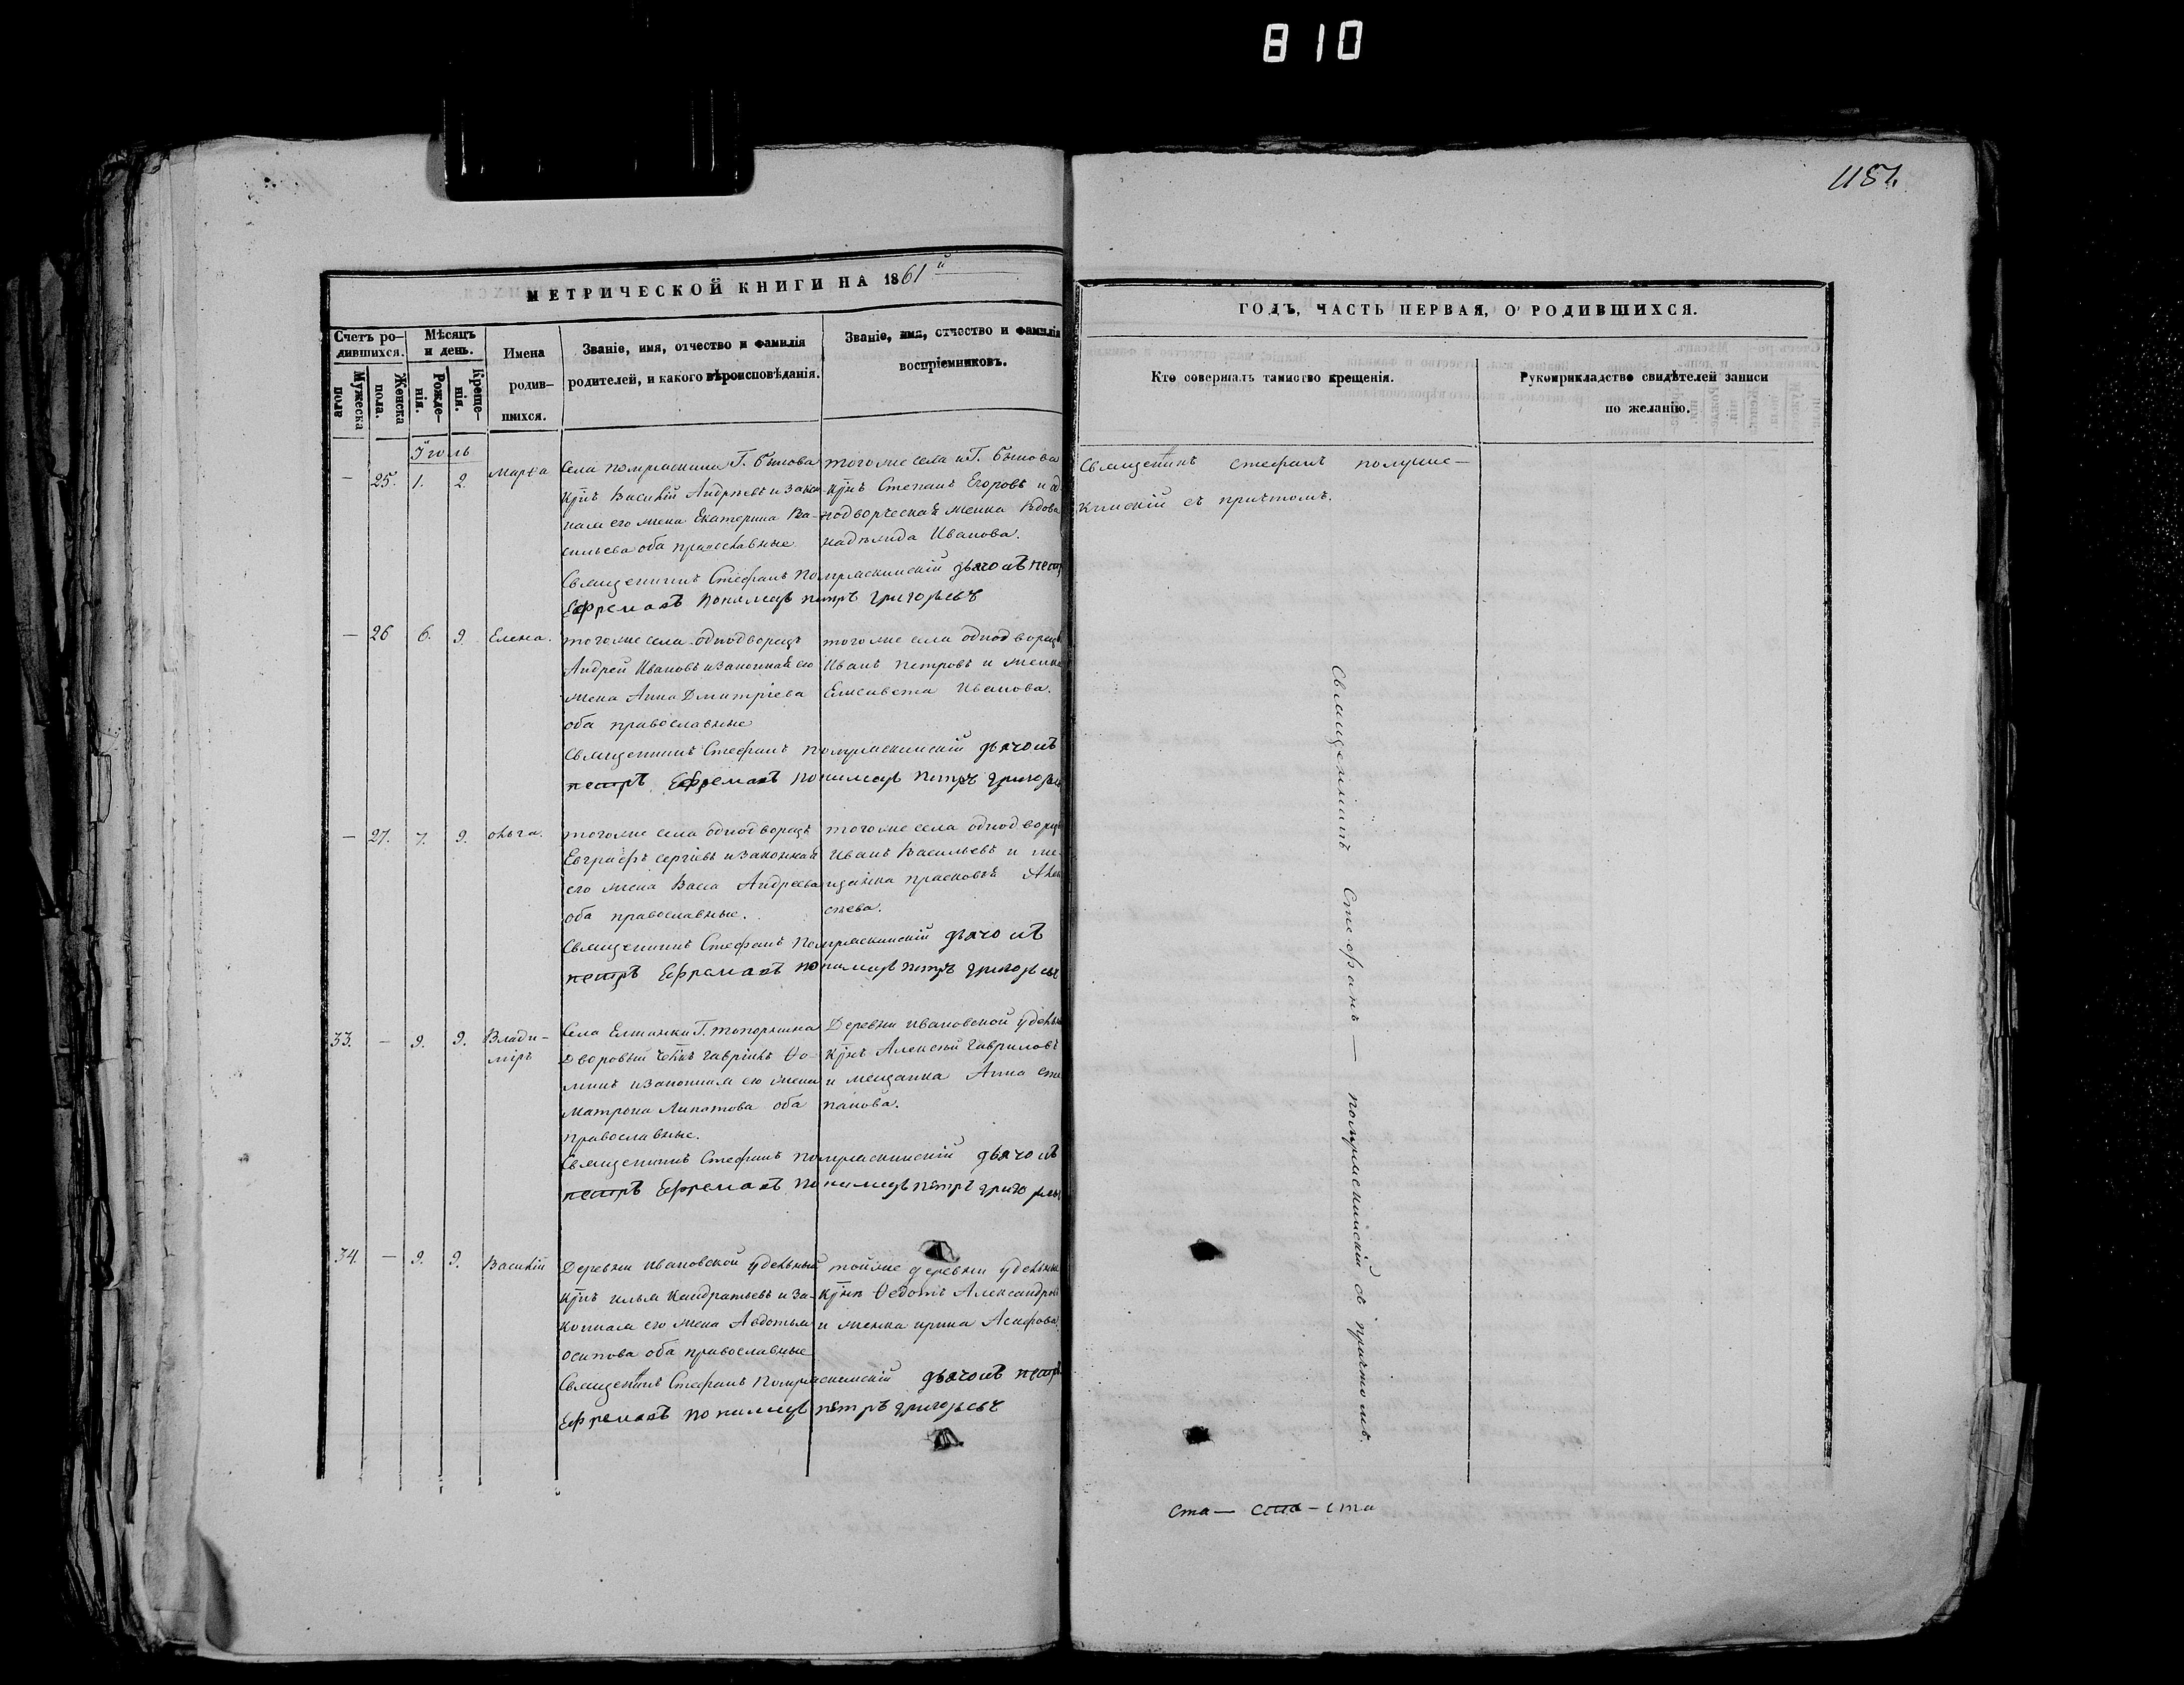 810
1151.
МЕТРИЧЕСКОЙ КНИГИ НА 1861й
ГОДЪ, ЧАСТЬ ПЕРВАЯ, О РОДИВШИХСЯ.
Счетъ ро-
дившихся.
Мужеска
пола
Женска
пола.
Мѣсяцъ
и день.
Рожде-
нія.
Креще-
нія.
Имена
родив-
шихся.
Званіе, имя, отчество и фамилія
родителей, и какого вѣроисповѣданія.
Званіе, имя, отчество и фамилія
воспріемниковъ.
Кто совершалъ таинство крещенія.
Рукоприкладство свидѣтелей записи
по желанію.
Іюль
— 25. 1. 2. Марѳа
Села Г. Быкова
Василій Андреевъ и закон-
ная его жена Екатерина Ва-
сильева оба православные
тогоже села и Г. Быкова
Степанъ Егоровъ и од-
нодворческая женка вдова
Надежда Иванова.
Священникъ Стефанъ
съ причтомъ.
Священникъ Стефанъ дьячокъ Петръ
Ефремовъ пономарь Петръ Григорьевъ
— 26 6. 9 Елена.
тогоже села однодворецъ
Андрей Ивановъ и законная его
жена Анна Дмитріева
оба православные
тогоже села однодворецъ
Иванъ Петровъ и женка
Елисавета Иванова.
Священникъ Стефанъ дьячокъ
Петръ Ефремовъ пономарь Петръ
— 27. 7. 9. Ольга.
тогоже села однодворецъ
Евграфъ Сергіевъ и законная
его жена Васса Андреева
оба православные.
тогоже села однодворецъ
Иванъ Васильевъ и ме-
щанка
Священникъ Стефанъ дьячокъ
Петръ Ефремовъ пономарь Петръ Григорьевъ
33. — 9. 9. Влади-
міръ
Села Елшанки Г. Топорнина
Дворовый Гавріилъ Ѳо-
минъ и законная его жена
Матрона Липатова оба
православные.
Деревни Ивановской
Алексѣй Гавриловъ
и мещанка Анна Сте-
панова.
Священникъ Стефанъ дьячокъ
Петръ Ефремовъ пономарь Петръ
34. — 9. 9. Василій
Деревни Ивановской удѣльный
Илья Кандратьевъ и за-
конная его жена Авдотья
Осипова оба православные
тойже деревни
Ѳедотъ Александровъ
и женка Ирина
Священникъ Стефанъ дьячокъ Петръ
Ефремовъ пономарь Петръ Григорьевъ
Священникъ Стефанъ — съ причтомъ.
ста — ста — ста